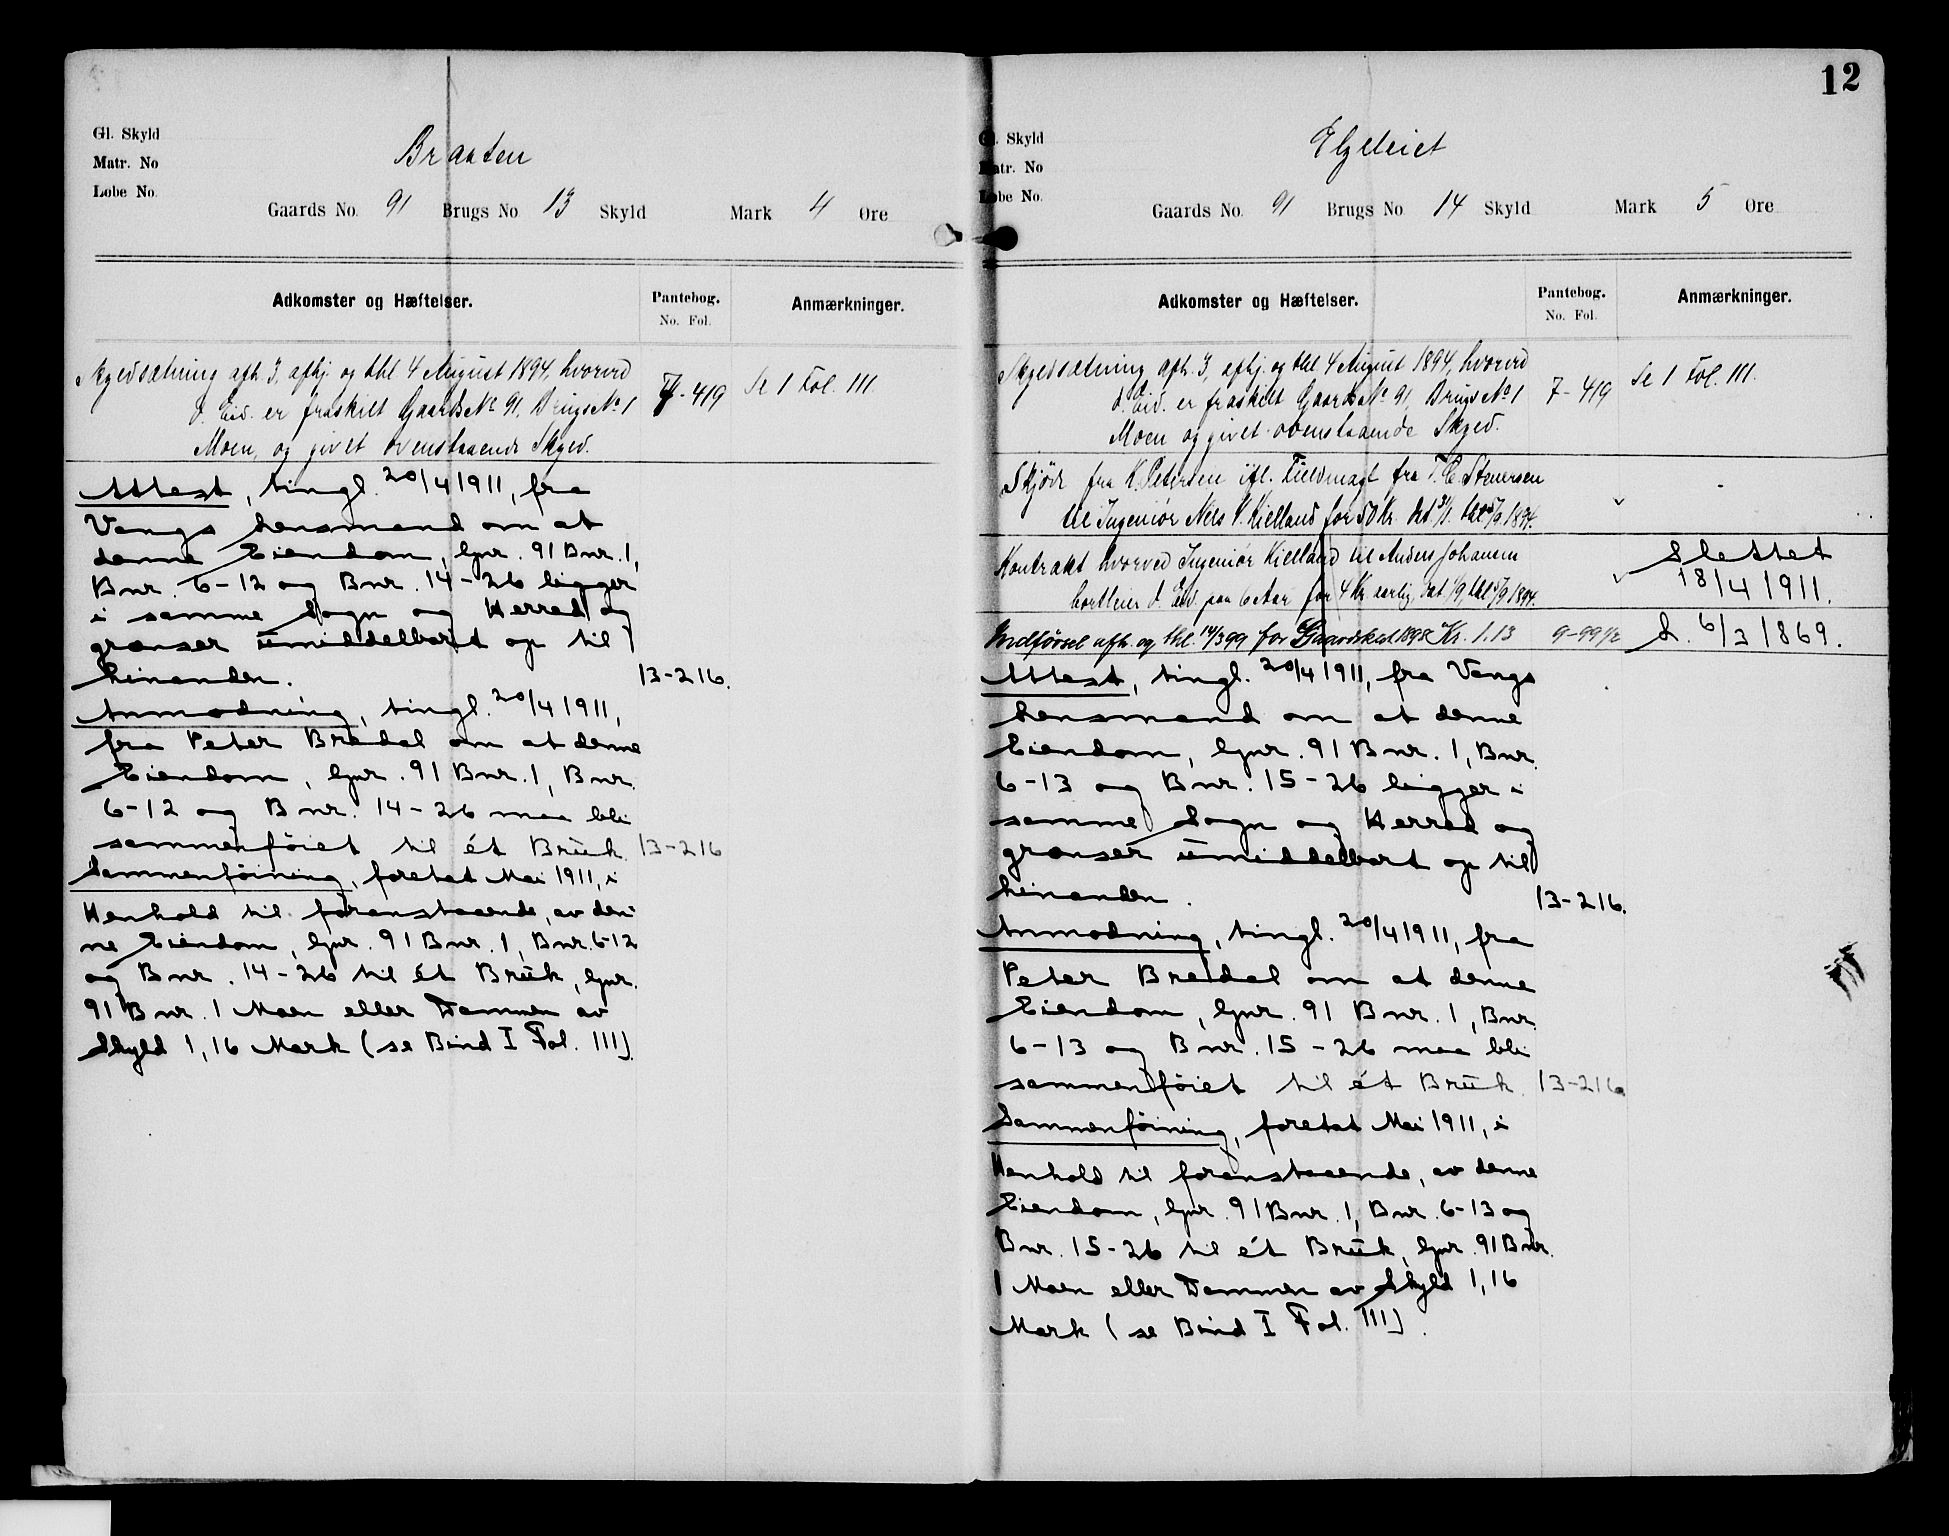 12
Gl. Skyld
Matr. No
Løbe No.
Braaten
Gaards No. 91 Brugs No 13 Skyld Mark 4 Øre
Adkomster og Hæftelser.
Pantebog.
No. Fol.
Anmærkninger.
Skyldsætning afh. 3, afhj. og thl. 4 August 1894, hvorved
d. Eid. er fraskilt Gaards No 91, Brugs No 1
Moen, og givet ovenstaaende Skyld.
7-419
Se 1 Fol. 111
Attest, tingl. 20/4 1911, fra
Vangs Lensmand om at
denne Eiendom, Gnr. 91 Bnr. 1,
Bnr. 6-12 og Bnr. 14-26 ligger
i samme Sogn og Herred og
grænser umiddelbart op til
hinanden.
13-216.
Anmodning, tingl. 20/4 1911,
fra Peter Bredal om at denne
Eiendom, Gnr. 91 Bnr. 1, Bnr.
6-12 og Bnr. 14-26 maa bli
sammenføiet til ét Bruk.
13-216
Sammenføining, foretat Mai 1911, i
Henhold til foranstaaende, av den-
ne Eiendom, Gnr. 91 Bnr. 1, Bnr. 6-12
og Bnr. 14-26 til ét Bruk, Gnr.
91 Bnr. 1 Moen eller Dammen av
Skyld 1,16 Mark (se Bind I Fol. 111).
Gl. Skyld
Matr. No
Løbe No.
Gaards No. 91 Brugs No 14 Skyld Mark 5 Øre
Adkomster og Hæftelser.
Pantebog.
No. Fol.
Anmærkninger.
Skyldsætning afh. 3, afhj. og thl. 4 August 1894, hvorved
d. Eid. er fraskilt Gaards No 91, Brugs No 1
Moen og givet ovenstaaende Skyld.
7-419
Se 1 Fol. 111.
Skjøde fra K. Petersen ifl. Fuldmagt fra T. C. Stenersen
til Ingeniør Nels V. Kielland for 50 Kr. dat. thl. 5/9 1894.
Kontrakt hvorved Ingeniør Kielland til Anders Johansen
bortleier d. Eid. paa 6 Aar for 4 Kr aarlig, dat 1/9, thl 5/9 1894.
Slettet
18/4 1911.
Indførsel afh. og thl. 14/3 99 for Skat 1898 Kr. 1.13
9-99 1/2
S. 6/3 1869.
Attest, tingl. 20/4 1911, fra Vangs
Lensmand om at denne
Eiendom, Gnr. 91 Bnr. 1, Bnr.
6-13 og Bnr. 15-26 ligger i
samme Sogn og Herred og
grænser umiddelbart op til
hinanden.
13-216.
Anmodning, tingl. 20/4 1911, fra
Peter Bredal om at denne
Eiendom, Gnr. 91 Bnr. 1, Bnr.
6-13 og Bnr. 15-26 maa bli
sammenføiet til ét Bruk.
13-216
Sammenføining, foretat Mai 1911, i
Henhold til foranstaaende, av denne
Eiendom, Gnr. 91 Bnr. 1, Bnr. 6-13 og
Bnr. 15-26 til ét Bruk, Gnr. 91 Bnr.
1 Moen eller Dammen av Skyld 1,16
Mark (se Bind I Fol. 111).